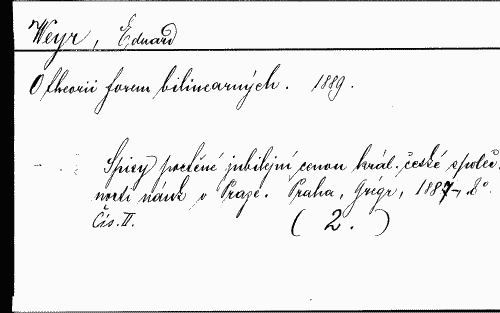 Weyr, Eduard
O theorii forem bilinearných. 1889.
Spisy poctěné jubilejní cenou král. české společ.
nosti náuk v Praze. Praha, Grégr, 1887, 8°.
Čís. II. ( 2. )